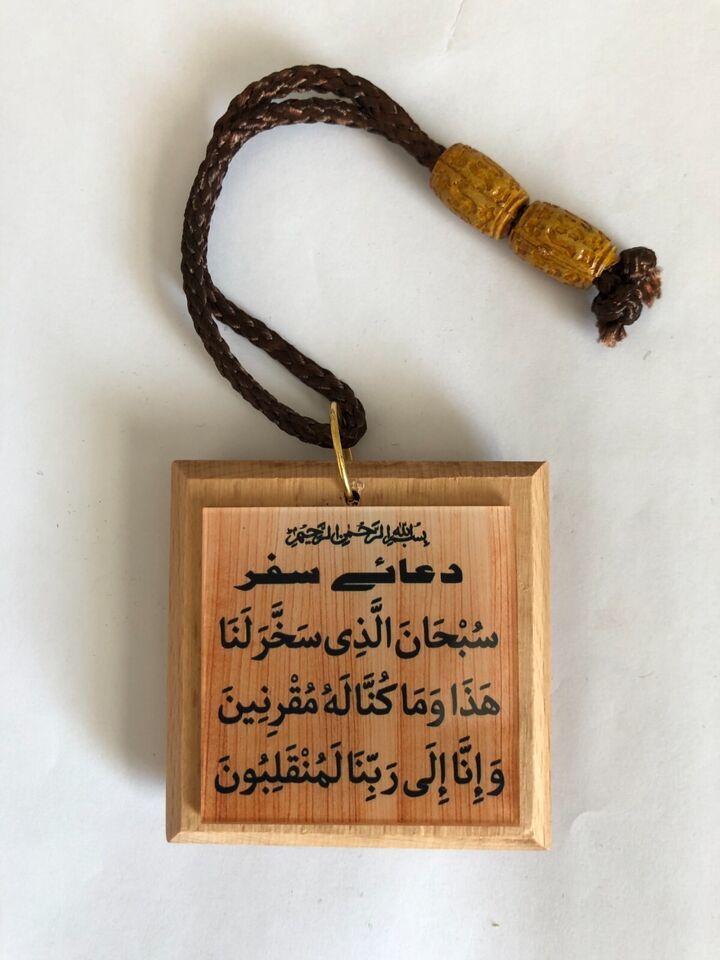 بسم الله الرحمن الرحيم
دعائے سفر
سُبْحَانَ الَّذِی سَخَّرَ لَنَا
هَذَا وَمَا كُنَّا لَهُ مُقْرِنِينَ
وَإِنَّا إِلَى رَبِّنَا لَمُنْقَلِبُونَ